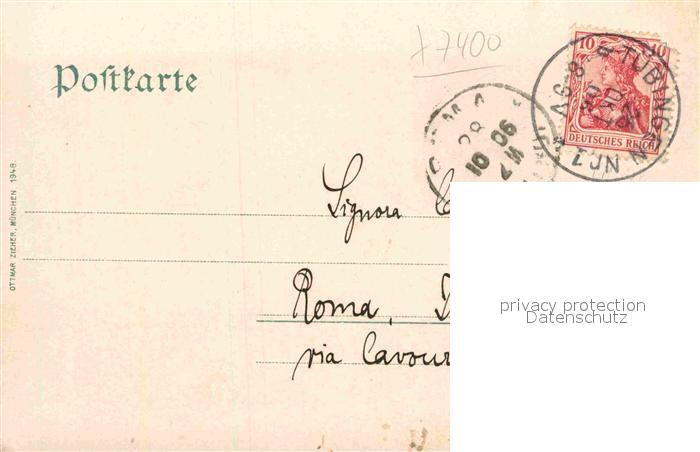 7400
Postkarte
10 10
DEUTSCHES REICH
TÜBINGEN
ROMA
10 06
Signora
Roma,
via Cavour
OTTMAR ZIEHER, MÜNCHEN 1948.
privacy protection
Datenschutz